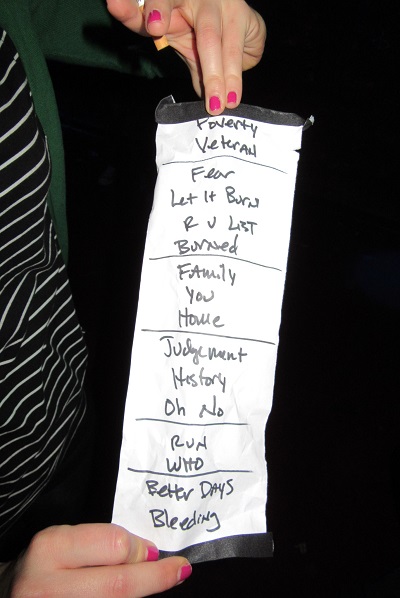 Poverty
Veteran
Fear
Let It Burn
R U List
Burned
Family
You
Home
Judgement
History
Oh No
Run
Who
Better Days
Bleeding